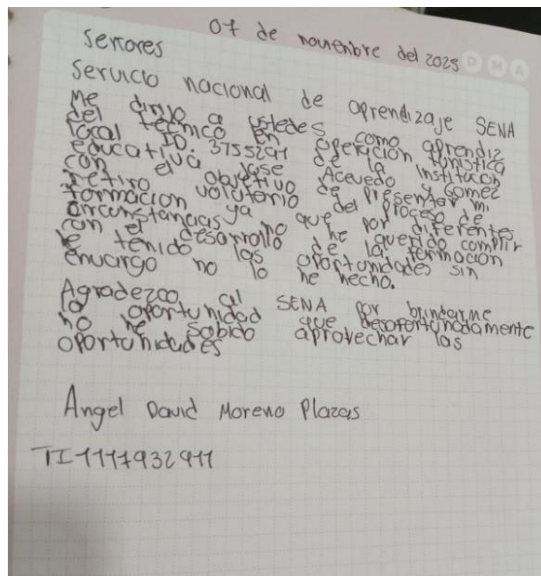 07 de novienbre del 2025
D M A
Señores
Servicio nacional de aprendizaje SENA
Me dirijo a ustedes como aprendiz
del tecnico en opericion turistica
local ID. 3755291 de la institucin
educativa Jose Acevedo y Gomez
con el objetivo de presentar mi
retiro volutorio del proceso de
formacion ya que por diferentes
circunstancias no he querido complir
con el desarrollo de la formacion
he tenido las oportunidades sin
envargo no lo he hecho.
Agradezco al SENA por brindarme
la oportunidad que desofortunadamente
no he sabido aprovechar las
oportunidades
Angel David Moreno Plazas
TI 1117932911